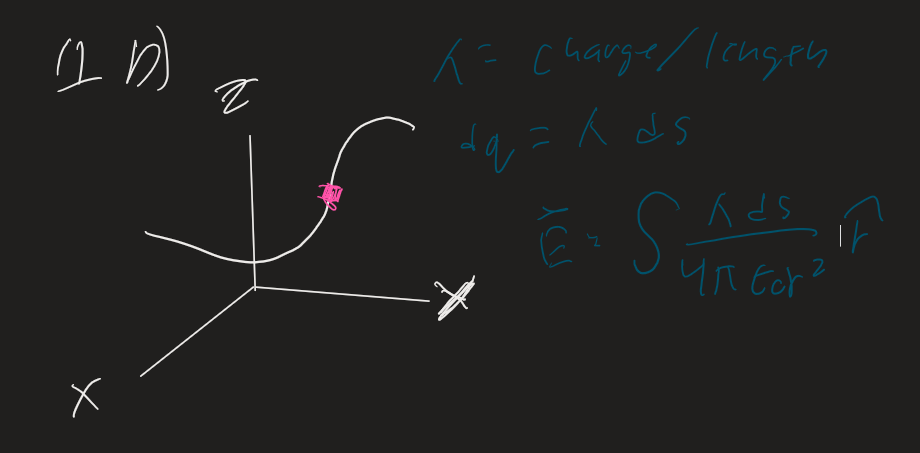 (1 D)
z
λ = charge/length
dq = λ ds
E = ∫ λ ds / 4π ε0 r² r̂
x